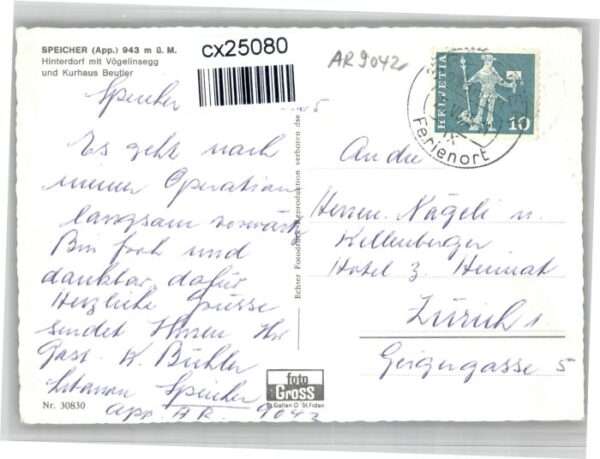 SPEICHER (App.) 943 m ü. M.
Hinterdorf mit Vögelinsegg
und Kurhaus Beutler
cx25080
AR 9042
HELVETIA
10
Ferienort
Speicher
Es geht nach
meiner Operation
langsam vorwärts
Bin froh und
dankbar dafür
Herzliche Grüsse
sendet Ihnen Ihr
Gast. K. Bächler
Speicher
App. AR. 9042
Echter Fotodruck Reproduktion verboten
An die
Herren Nägeli u.
Kellenberger
Hotel z. Heimat
Zürich 1.
Geigergasse 5
foto
Gross
St. Gallen O St. Fiden
Nr. 30830